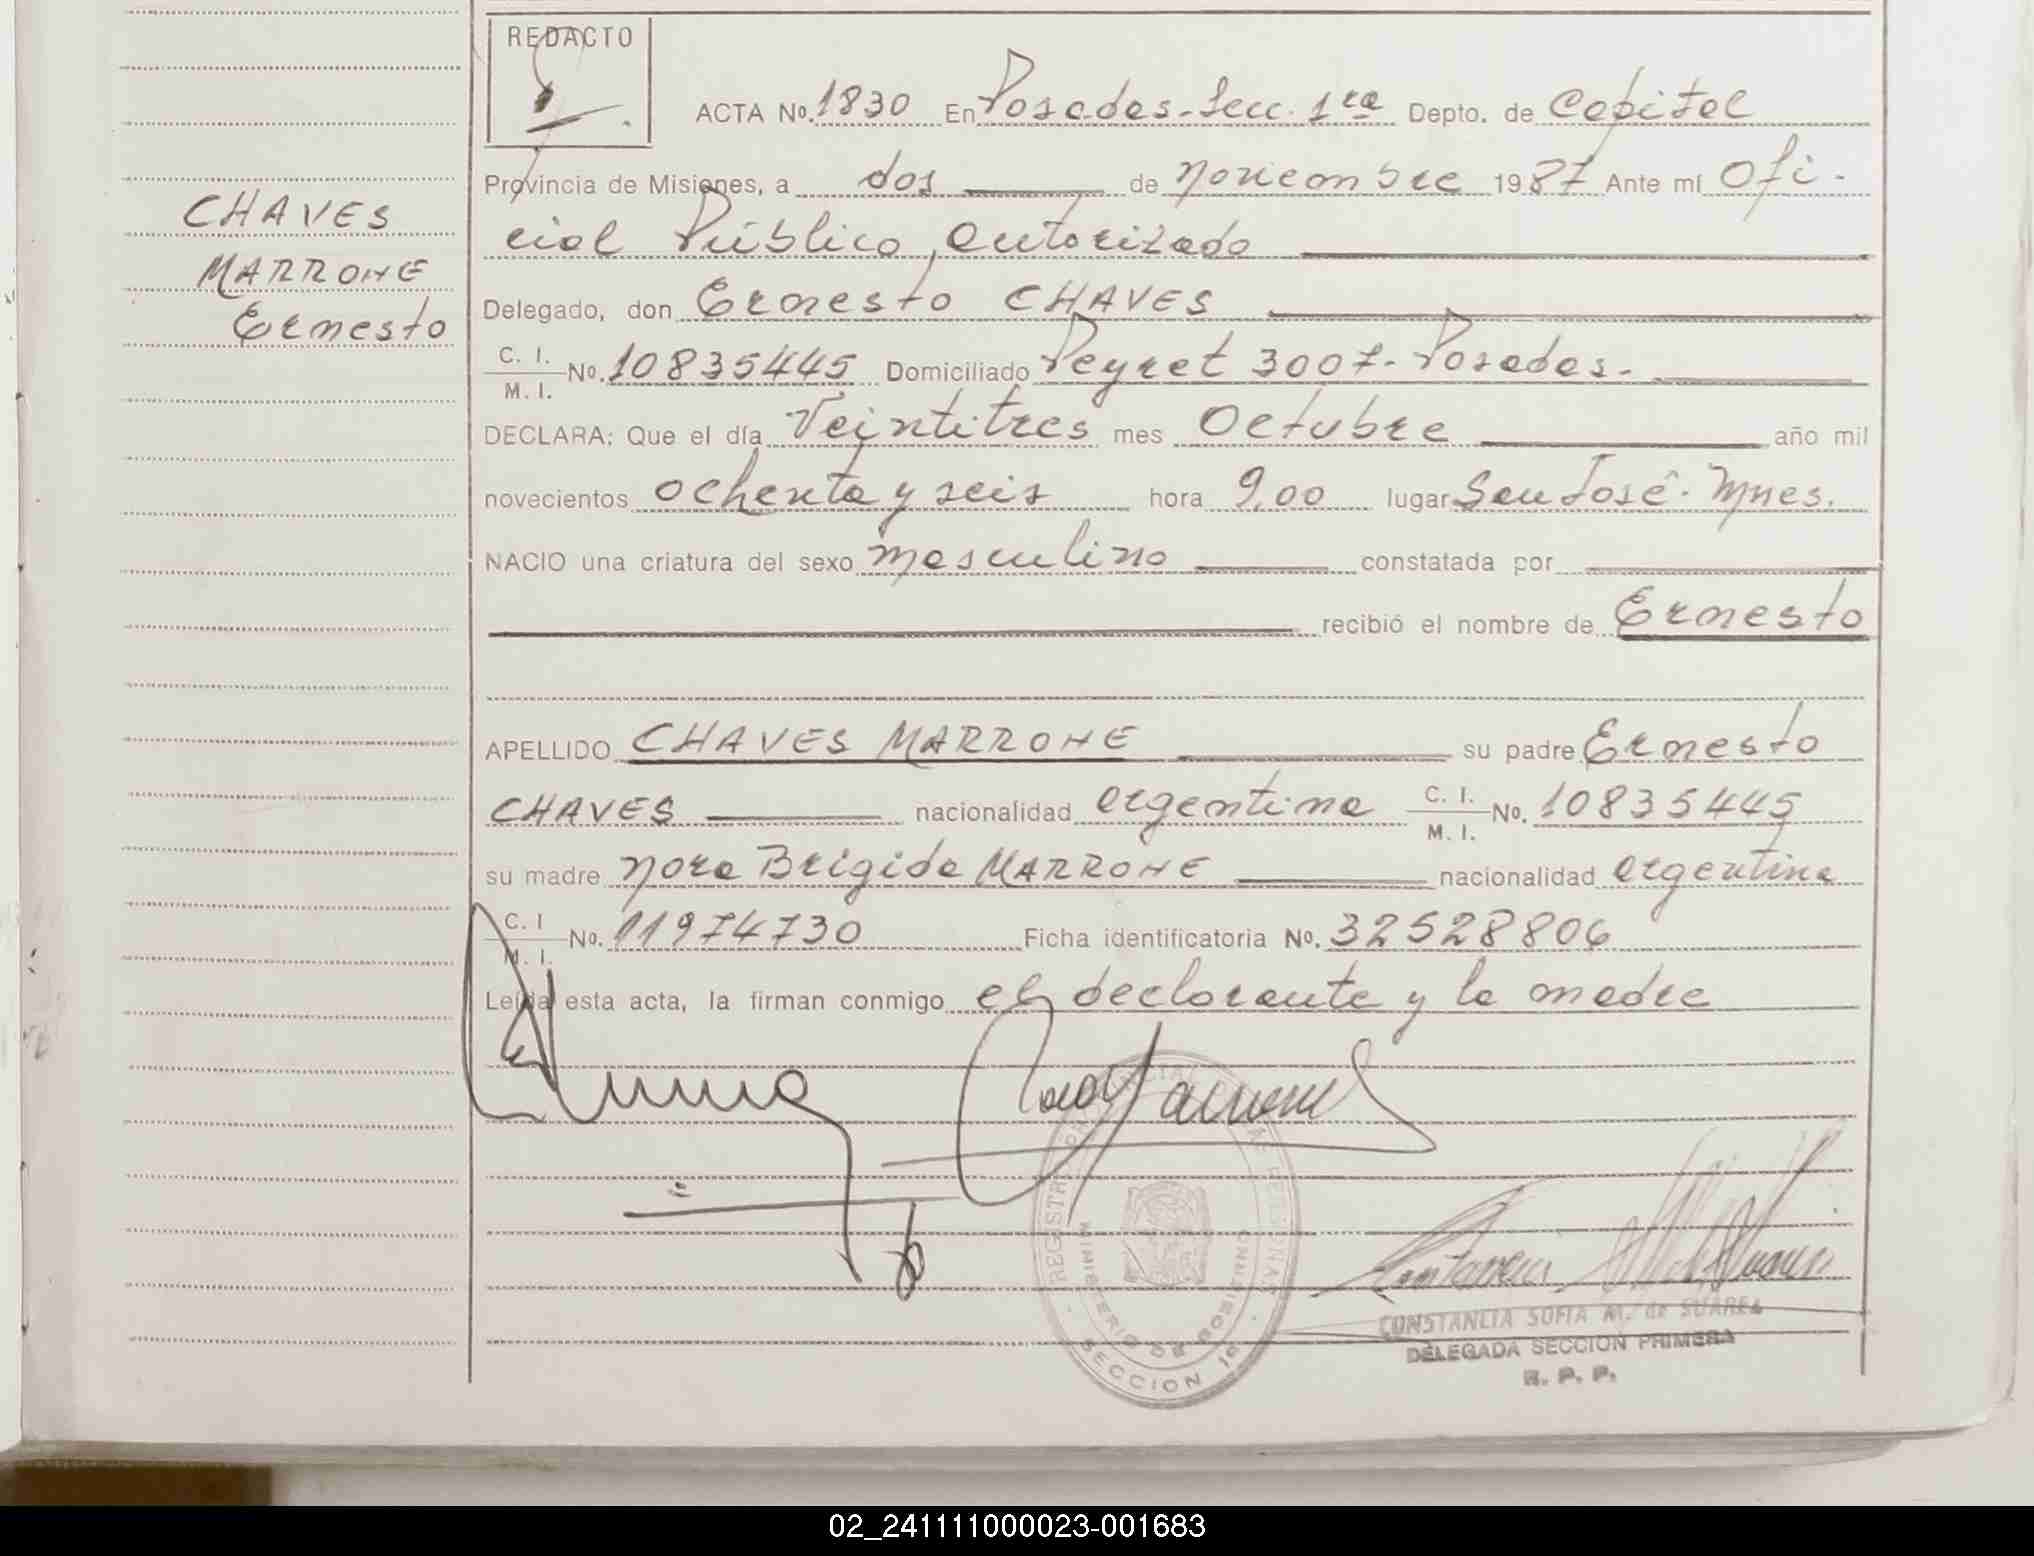 REDACTO
ACTA No. 1830 En Posadas-Secc. 1ra Depto. de Capital
Provincia de Misiones, a dos de noviembre 1987 Ante mí Ofi-
cial Público Autorizado
Delegado, don Ernesto CHAVES
C. I.
M. I. No. 10835445 Domiciliado Peyret 3007-Posadas.-
DECLARA: Que el día Veintitres mes Octubre año mil
novecientos ochenta y seis hora 9,00 lugar San José-Mnes.
NACIO una criatura del sexo masculino constatada por
recibió el nombre de Ernesto
APELLIDO CHAVES MARRONE su padre Ernesto
CHAVES nacionalidad argentina C. I. M. I. No. 10835445
su madre Nora Brigida MARRONE nacionalidad argentina
C. I M. I. No. 11974730 Ficha identificatoria No. 32528806
Leída esta acta, la firman conmigo el declarante y la madre
CHAVES
MARRONE
Ernesto
MINISTERIO DE GOBIERNO
SECCION 1a
CONSTANCIA SOFIA M. de SUAREZ
DELEGADA SECCION PRIMERA
R. P. P.
02_241111000023-001683